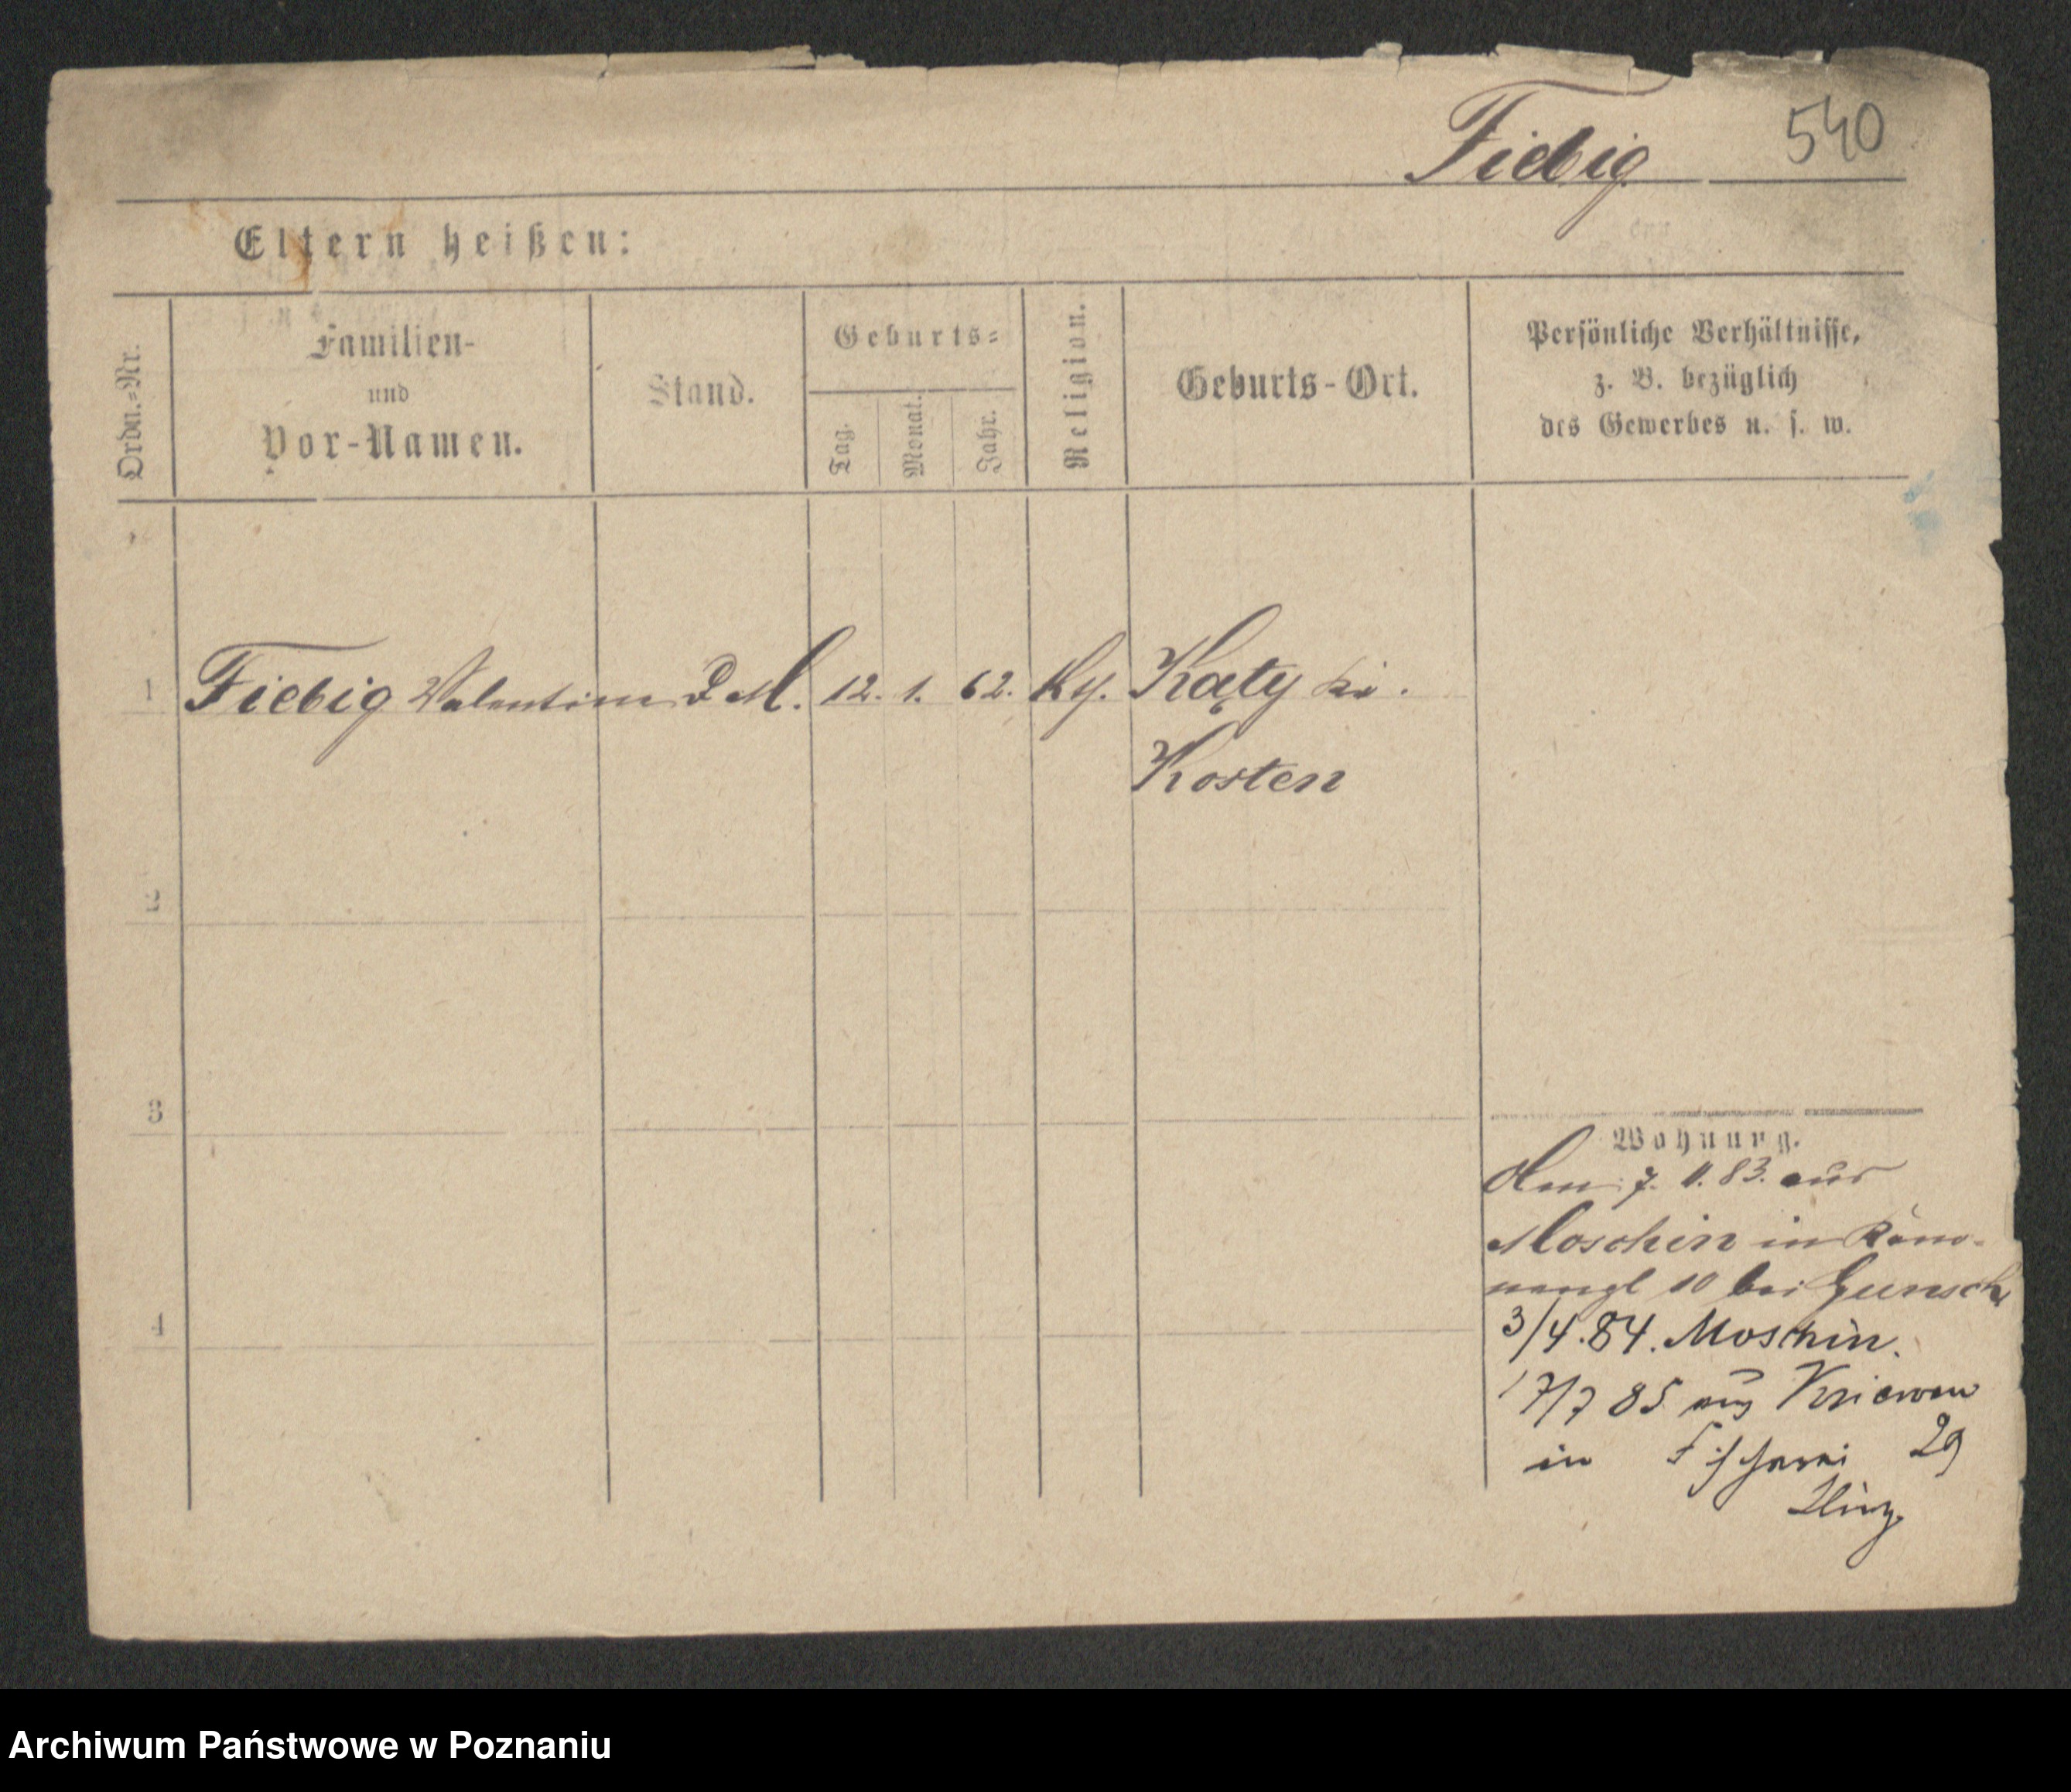 Fiebig 540
Eltern heißen:
Ordn.-Nr.
Familien-
und
Vor-Namen.
Stand.
Geburts-
Tag.
Monat.
Jahr.
Religion.
Geburts-Ort.
Persönliche Verhältnisse,
z. B. bezüglich
des Gewerbes u. s. w.
1 Fiebig Valentina D M. 12. 1. 62. Kth. Kąty Kr.
Kosten
2
3
Wohnung.
Am 7. 11. 83. aus
Moschin in
10 bei
4
3/4.84. Moschin.
17/7 85 aus Kriewen
in Fischerei 29
Archiwum Państwowe w Poznaniu